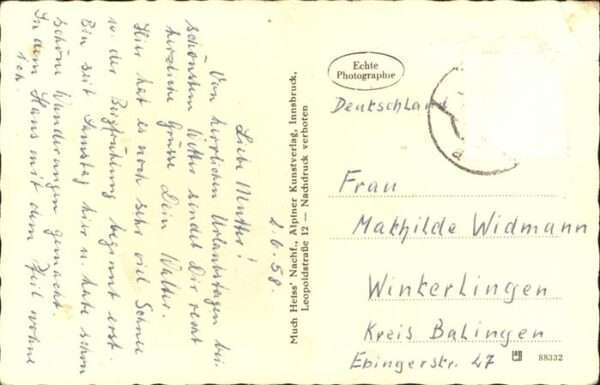 2.6.58.
Liebe Mutter!
Von herrlichen Urlaubstagen bei
schönstem Wetter sendet Dir recht
herzliche Grüsse Dein Walter.
Hier hat es noch sehr viel Schnee
u. der Bergfrühling beginnt erst.
Bin seit Samstag hier u. habe schon
schöne Wanderungen gemacht.
In dem Haus mit dem Pfeil wohne
ich.
Much Heiss' Nachf., Alpiner Kunstverlag, Innsbruck,
Leopoldstraße 12 — Nachdruck verboten
Echte
Photographie
Deutschland
Frau
Mathilde Widmann
Winterlingen
Kreis Balingen
Ebingerstr. 27
88332